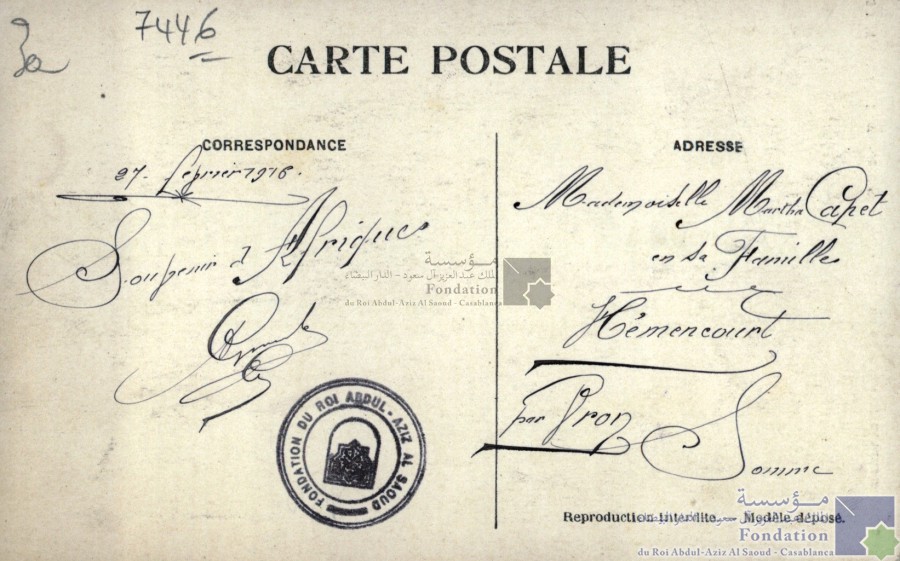 7446
CARTE POSTALE
CORRESPONDANCE
27. Février 1916.
Souvenir d'Afrique
ADRESSE
Mademoiselle Martha Capet
en sa Famille
Hémencourt
par Oron
Somme
FONDATION DU ROI ABDUL-AZIZ AL SAOUD
مؤسسة
الملك عبد العزيز آل سعود – الدار البيضاء
Fondation
du Roi Abdul-Aziz Al Saoud - Casablanca
Reproduction interdite. — Modèle déposé.
مؤسسة
الملك عبد العزيز آل سعود – الدار البيضاء
Fondation
du Roi Abdul-Aziz Al Saoud - Casablanca